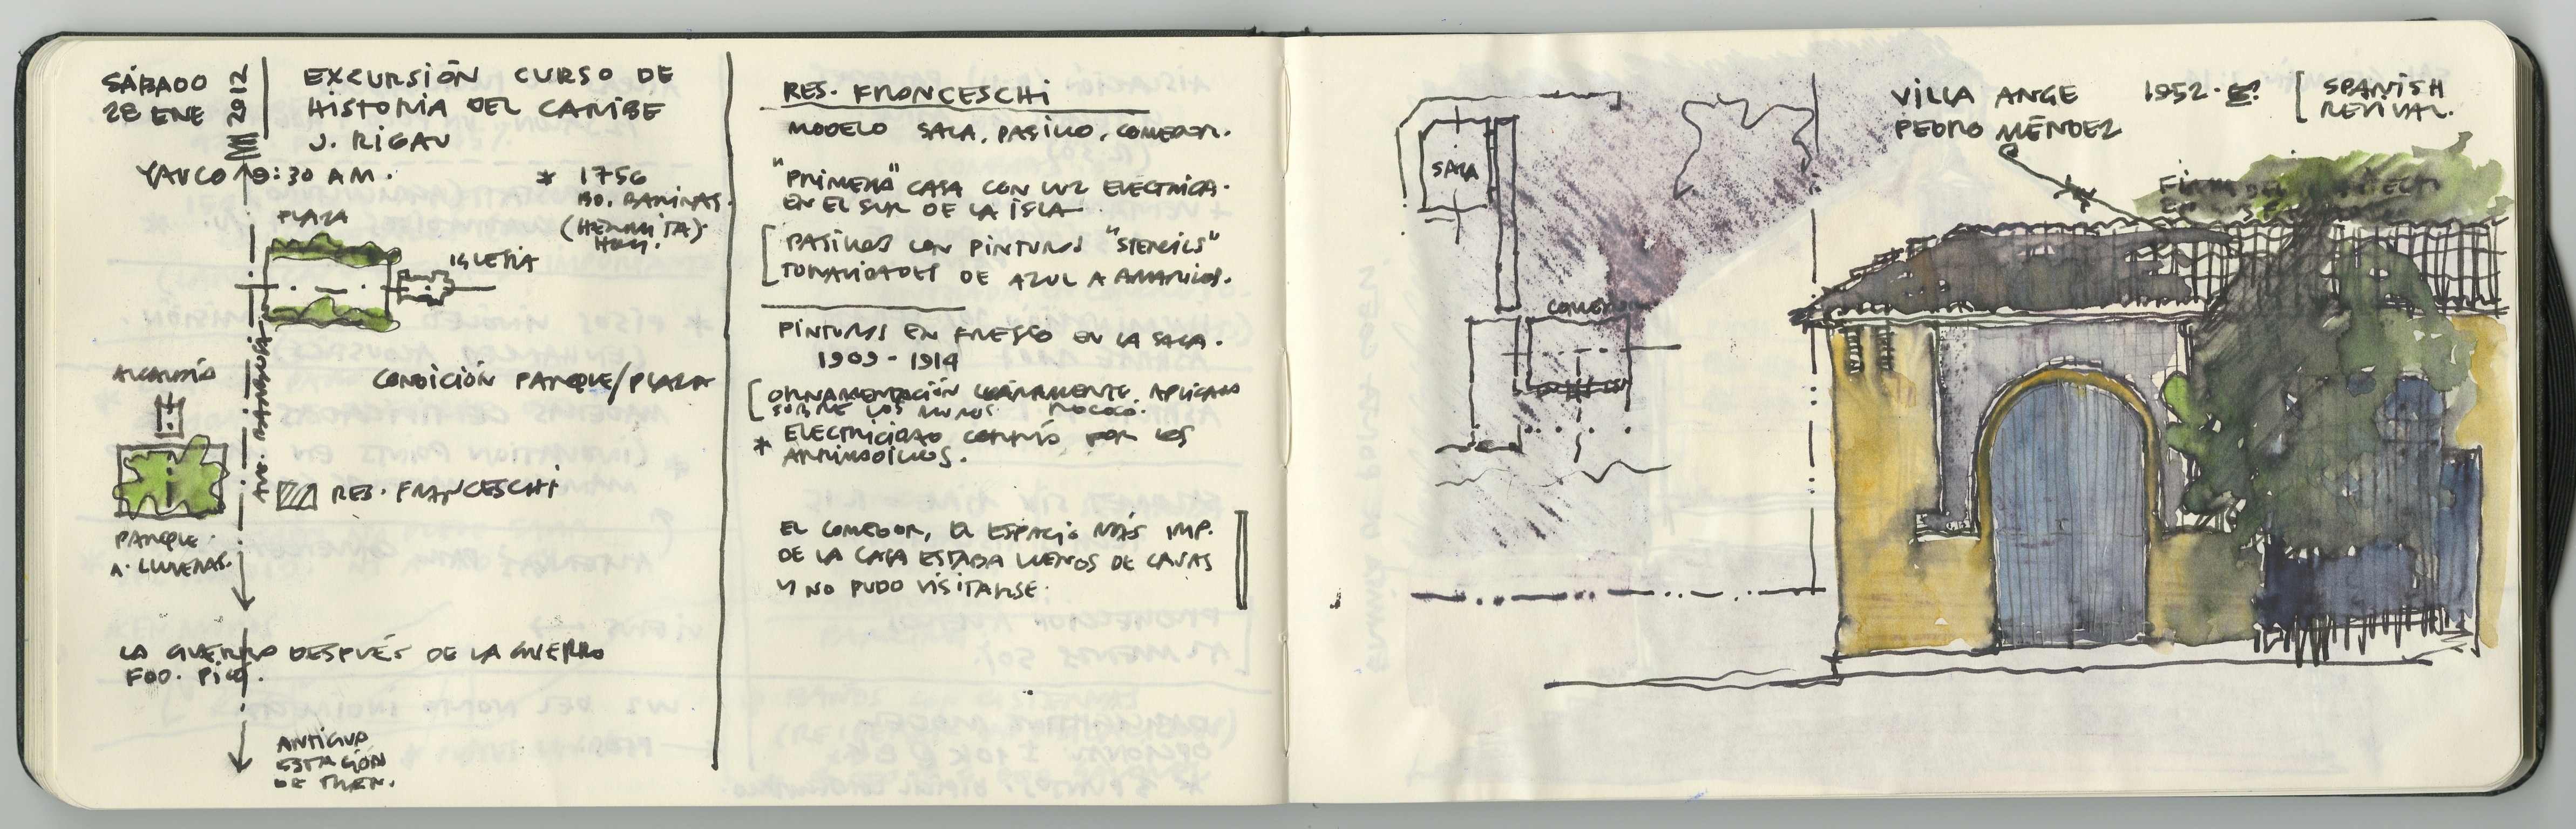 SÁBADO
28 ENE
2012
EXCURSIÓN CURSO DE
HISTORIA DEL CARIBE
J. RIGAU
YAUCO 9:30 AM.
* 1756
BO. BARINAS.
(HERMITA)
PLAZA
IGLESIA
AVE.
CONDICIÓN PARQUE/PLAZA
ALCALDÍA
RES. FRANCESCHI
PARQUE
A. LLUVERAS.
LA GUERRA DESPUÉS DE LA GUERRA
FDO. PICÓ.
ANTIGUA
ESTACIÓN
DE TREN.
RES. FRONCESCHI
MODELO SALA, PASILLO, COMEDOR.
"PRIMERA" CASA CON LUZ ELECTRICA.
EN EL SUR DE LA ISLA
PASILLOS CON PINTURAS "STENCILS"
TONALIDADES DE AZUL A AMARILLOS.
PINTURAS EN FRESCO EN LA SALA.
1909 - 1914
ORNAMENTACIÓN APLICADA
SOBRE LOS MUROS. ROCOCO.
* ELECTRICIDAD CORRÍA POR LOS
EL COMEDOR, EL ESPACIO MÁS IMP.
DE LA CASA ESTABA LLENOS DE CAJAS
Y NO PUDO VISITARSE.
SALA
COMEDOR
VILLA ANGE 1952.
PEDRO MÉNDEZ
SPANISH
REVIVAL.